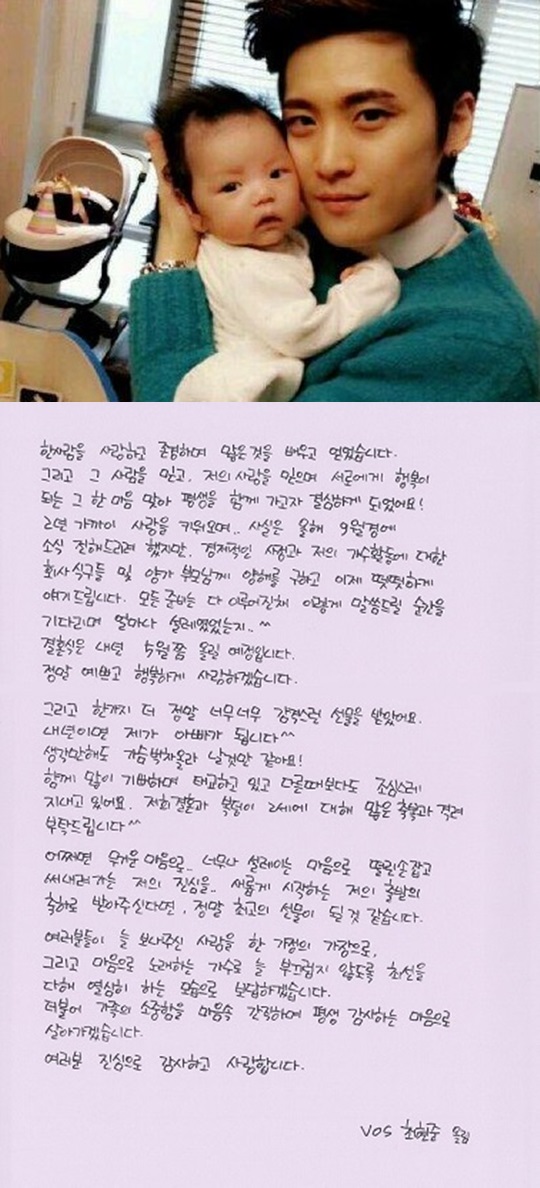 한사람을 사랑하고 존경하며 많은것을 배우고 얻었습니다.
그리고 그 사람을 믿고, 저의 사랑을 믿으며 서로에게 행복이
되는 그 한마음 맞아 평생을 함께 가고자 결심하게 되었어요!
2년 가까이 사랑을 키워오며.. 사실은 올해 9월경에
소식 전해드리려 했지만, 경제적인 사정과 저의 가수활동에 대한
회사식구들 및 양가 부모님께 양해를 구하고 이제 떳떳하게
얘기드립니다. 모든준비는 다 이루어진채 이렇게 말씀드릴 순간을
기다리며 얼마나 설레였었는지..^^
결혼식은 내년 5월쯤 올릴 예정입니다.
정말 예쁘고 행복하게 사랑하겠습니다.
그리고 한가지 더 정말 너무너무 갑작스런 선물을 받았어요.
내년이면 제가 아빠가 됩니다^^
생각만해도 가슴벅차올라 날것만 같아요!
함께 많이 기뻐하며 태교하고 있고 다른때보다도 조심스레
지내고 있어요. 저희결혼과 복덩이 2세에 대해 많은 축복과 격려
부탁드립니다^^
어쩌면 무거운 마음으로.. 너무나 설레이는 마음으로 떨린손잡고
써내려가는 저의 진심을.. 새롭게 시작하는 저의 출발의
축하로 받아주신다면, 정말 최고의 선물이 될것 같습니다.
여러분들이 늘 보내주신 사랑을 한 가정의 가장으로,
그리고 마음으로 노래하는 가수로 늘 부끄럽지 않도록 최선을
다해 열심히 하는 모습으로 보답하겠습니다.
더불어 가족의 소중함을 마음속 간직하며 평생 감사하는 마음으로
살아가겠습니다.
여러분 진심으로 감사하고 사랑합니다.
VOS 최현준 올림